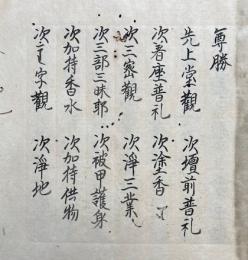 尊勝
先上堂觀 次壇前普礼
次着座普礼 次塗香
次三密觀 次淨三業
次三部三昧耶 次被甲護身
次加持香水 次加持供物
次字觀 次淨地